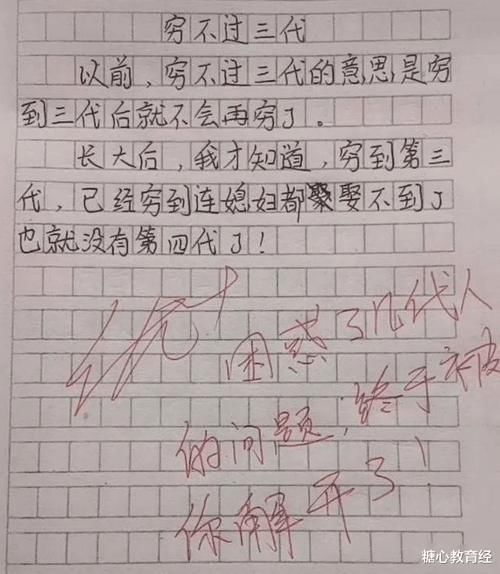 穷不过三代
以前，穷不过三代的意思是穷
到三代后就不会再穷了。
长大后，我才知道，穷到第三
代，已经穷到连媳妇都娶不到了
也就没有第四代了！
优+
困惑了几代人
的问题，终于被
你解开了！
糖心教育经